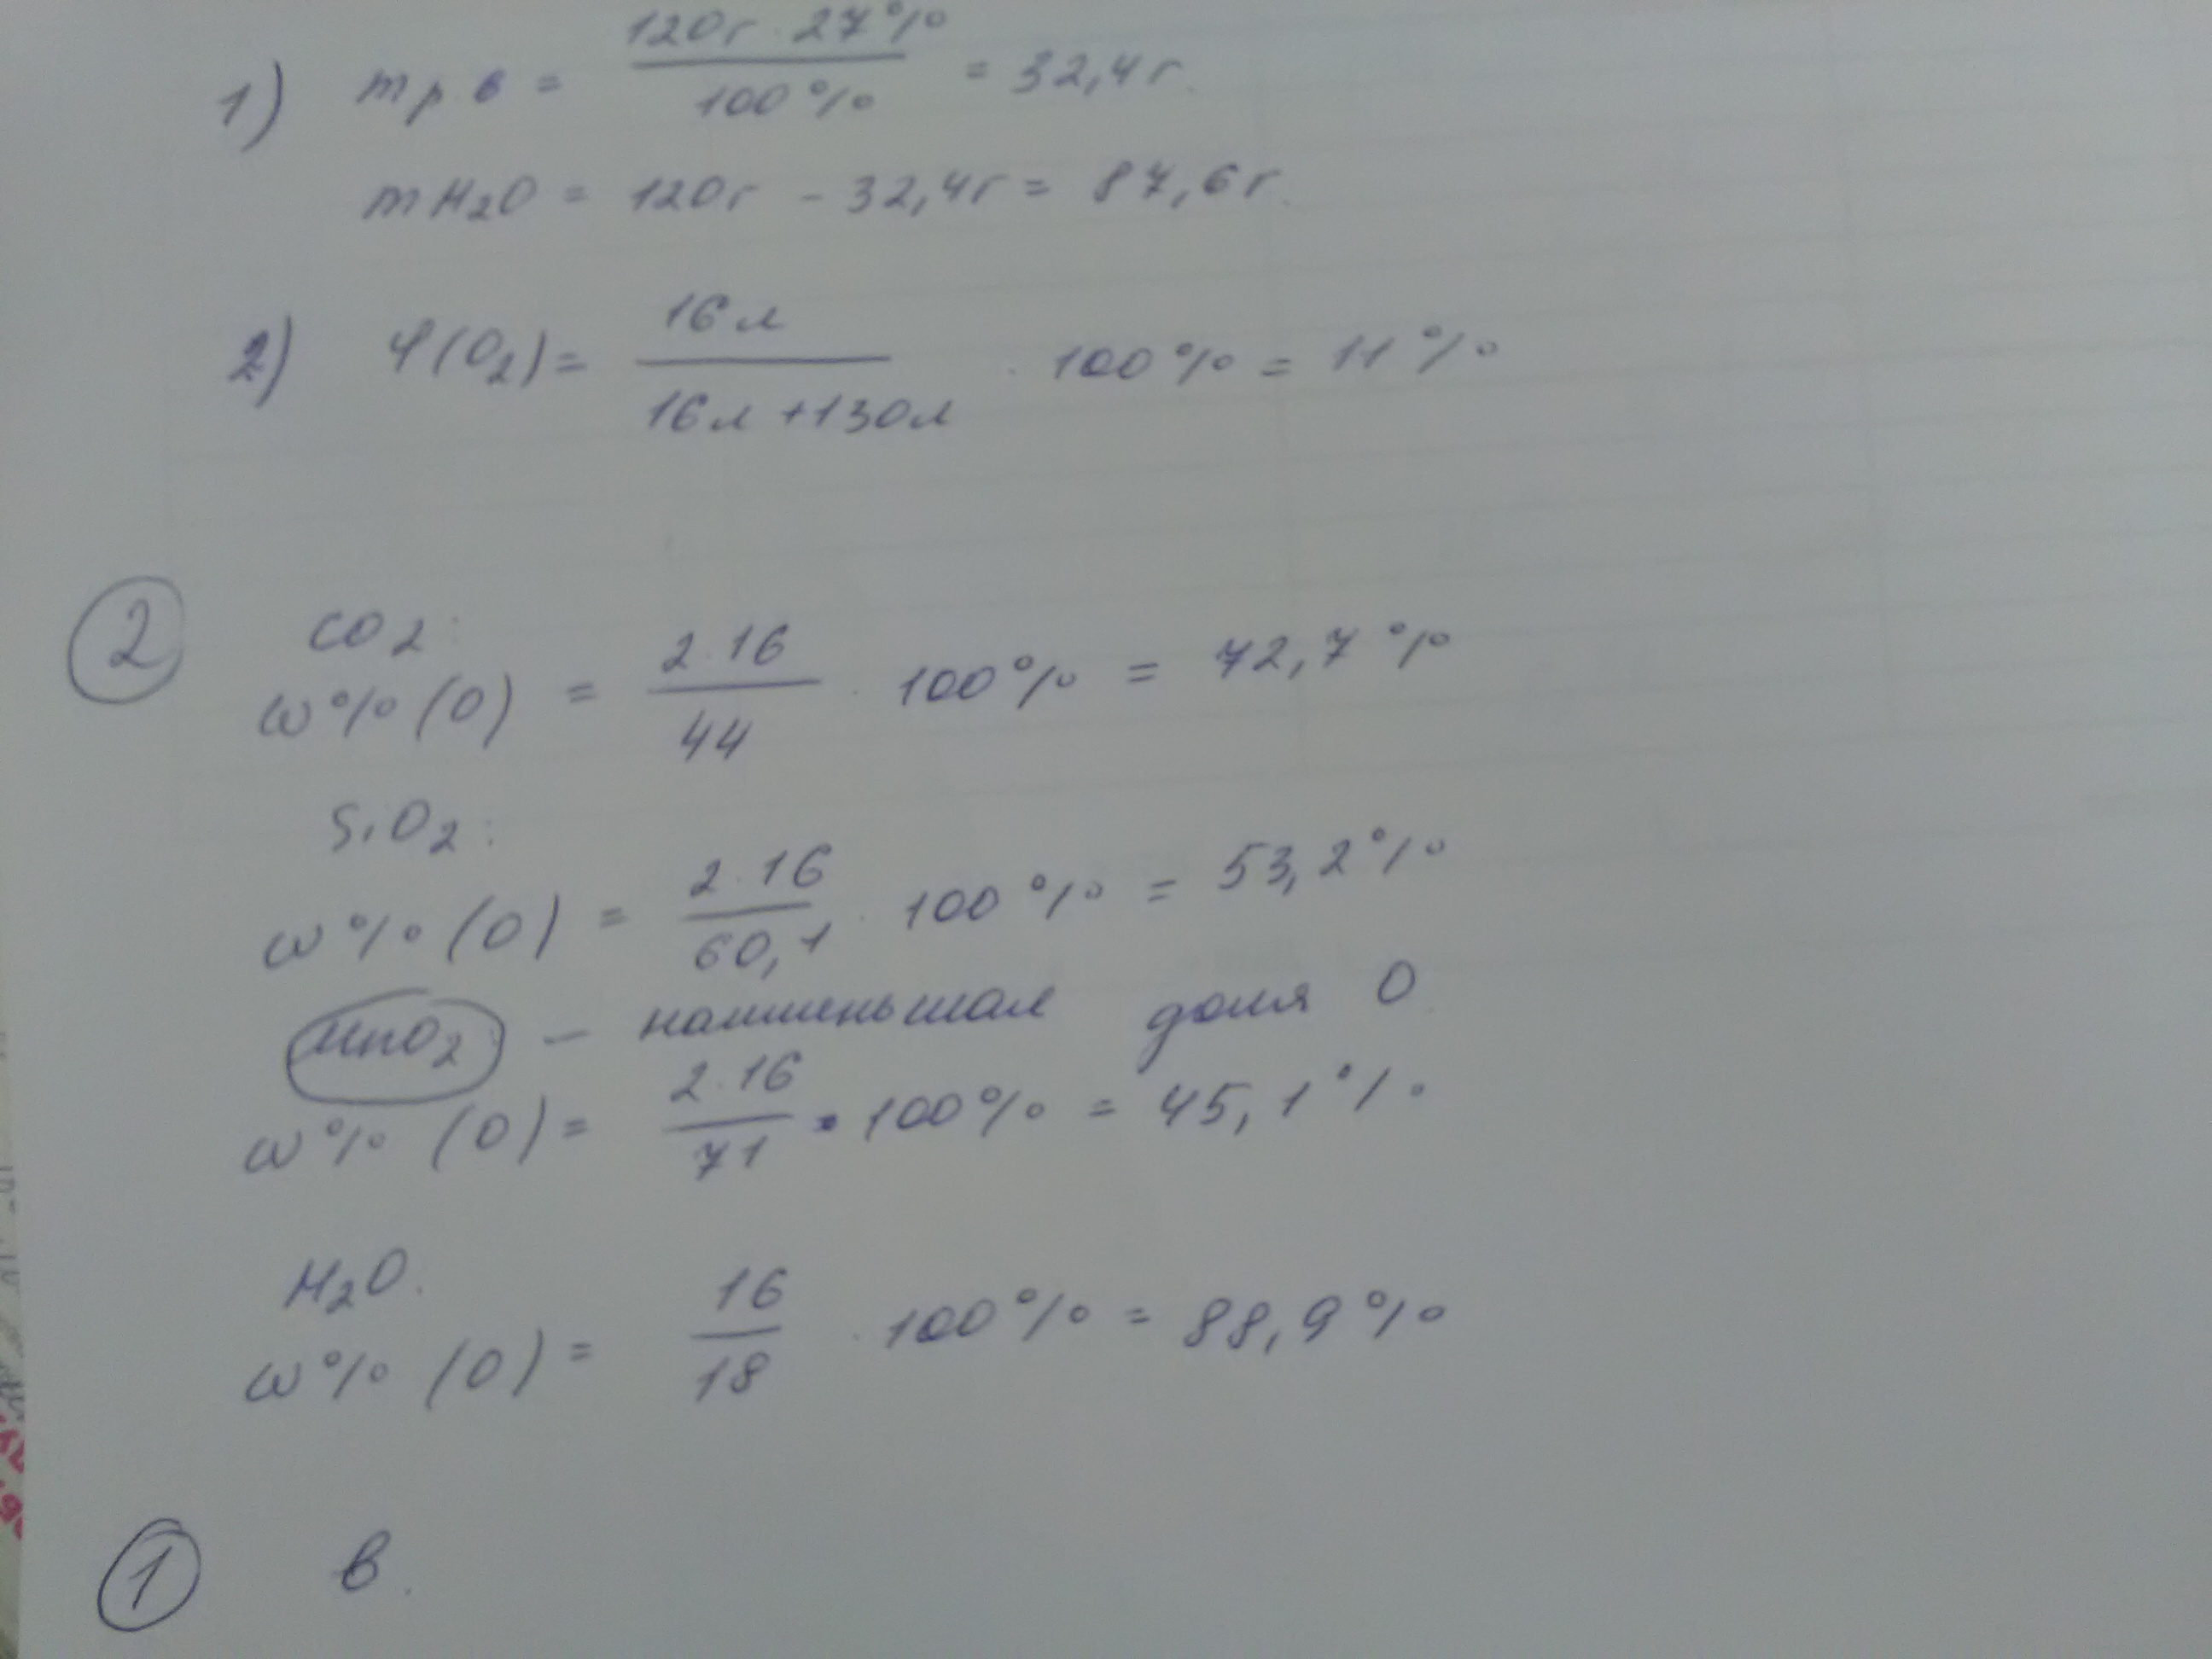 1) m р.в = 120г · 27% / 100% = 32,4г.
m H2O = 120г - 32,4г = 87,6г.
2) φ(O2) = 16л / 16л + 130л · 100% = 11%
2 CO2:
ω%(O) = 2·16 / 44 · 100% = 72,7%
SiO2:
ω%(O) = 2·16 / 60,1 · 100% = 53,2%
MnO2 — наименьшая доля O.
ω%(O) = 2·16 / 71 · 100% = 45,1%
H2O.
ω%(O) = 16 / 18 · 100% = 88,9%
1 в.